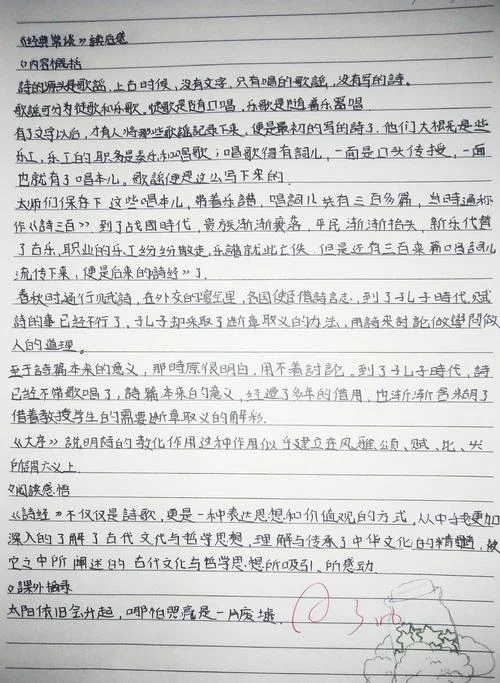 《经典常谈》读后感
内容概括
詩的源头是歌謡，上古时候，没有文字，只有唱的歌謡，没有写的詩。
歌謡可分为徒歌和乐歌。徒歌是随口唱，乐歌是随着乐器唱
有了文字以后，才有人将那些歌謡記录下来，便是最初的写的詩了，他们大槪是些
乐工，乐工的职务是奏乐和唱歌；唱歌得有詞儿，一面是口头传授，一面
也就有了唱本儿。歌謡便是这么写下来的
太师们保存下这些唱本儿，带着乐譜，唱詞儿共有三百多篇，当时通称
作《詩三百》到了战國時代，贵族渐渐衰落，平民渐渐抬头，新乐代替
了古乐，职业的乐工纷纷散走，乐譜就此亡佚．但是还有三百来篇唱詞儿
流传下来，便是后来的詩経》了．
春秋时通行赋詩，在外交的宴会里，各国使臣借詩言志，到了孔子時代，赋
詩的事已经不行了，孔子却采取了断章取义的办法，用詩来討論做學問做
人的道理。
至于詩篇本来的意义，那時原很明白，用不着討論。到了孔子時代，詩
已经不常歌唱了，詩篇本来的意义，经过了多年的借用，也渐渐含糊了
借着教授学生的需要断章取义的解釈．
《大序》説明詩的教化作用这种作用似乎建立在风、雅、頌、赋、比、兴
所謂六义上．
阅读感悟
《詩経》不仅仅是詩歌，更是一种表达思想和价值观的方式，从中我更加
深入的了解了古代文化与哲学思想，理解与传承了中华文化的精髓，被
它之中所阐述的古代文化与哲学思想所吸引、所感动．
課外摘录
太阳依旧会升起，哪怕咒高是一片废墟．